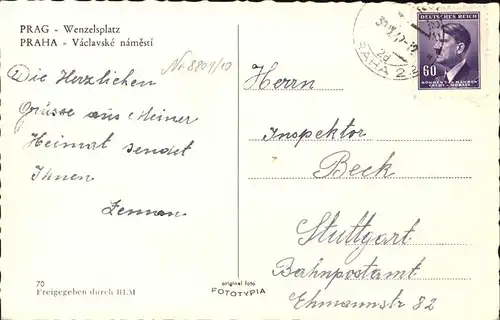 PRAG - Wenzelsplatz
PRAHA - Václavské náměstí
Nr 8809/10
Die Herzlichen
Grüsse aus Meiner
Heimat sendet
Ihnen
Zeman
70
Freigegeben durch RLM
original foto
FOTOTYPIA
PRAHA 2
2d
DEUTSCHES REICH
60
BÖHMEN UND MÄHREN
ČECHY A MORAVA
Herrn
Inspektor
Beck
Stuttgart
Bahnpostamt
Ehmannstr 82